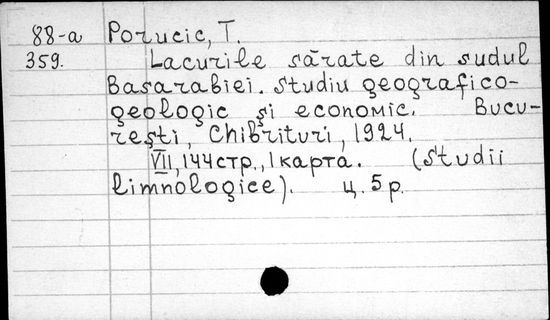 88-a Porucic, T.
359. Lacurile sărate din sudul
Basarabiei. Studiu geografico-
geologic și economic. Bucu-
rești, Chibrituri, 1924.
VII, 144 стр., 1 карта. (Studii
limnologice). ц. 5 р.